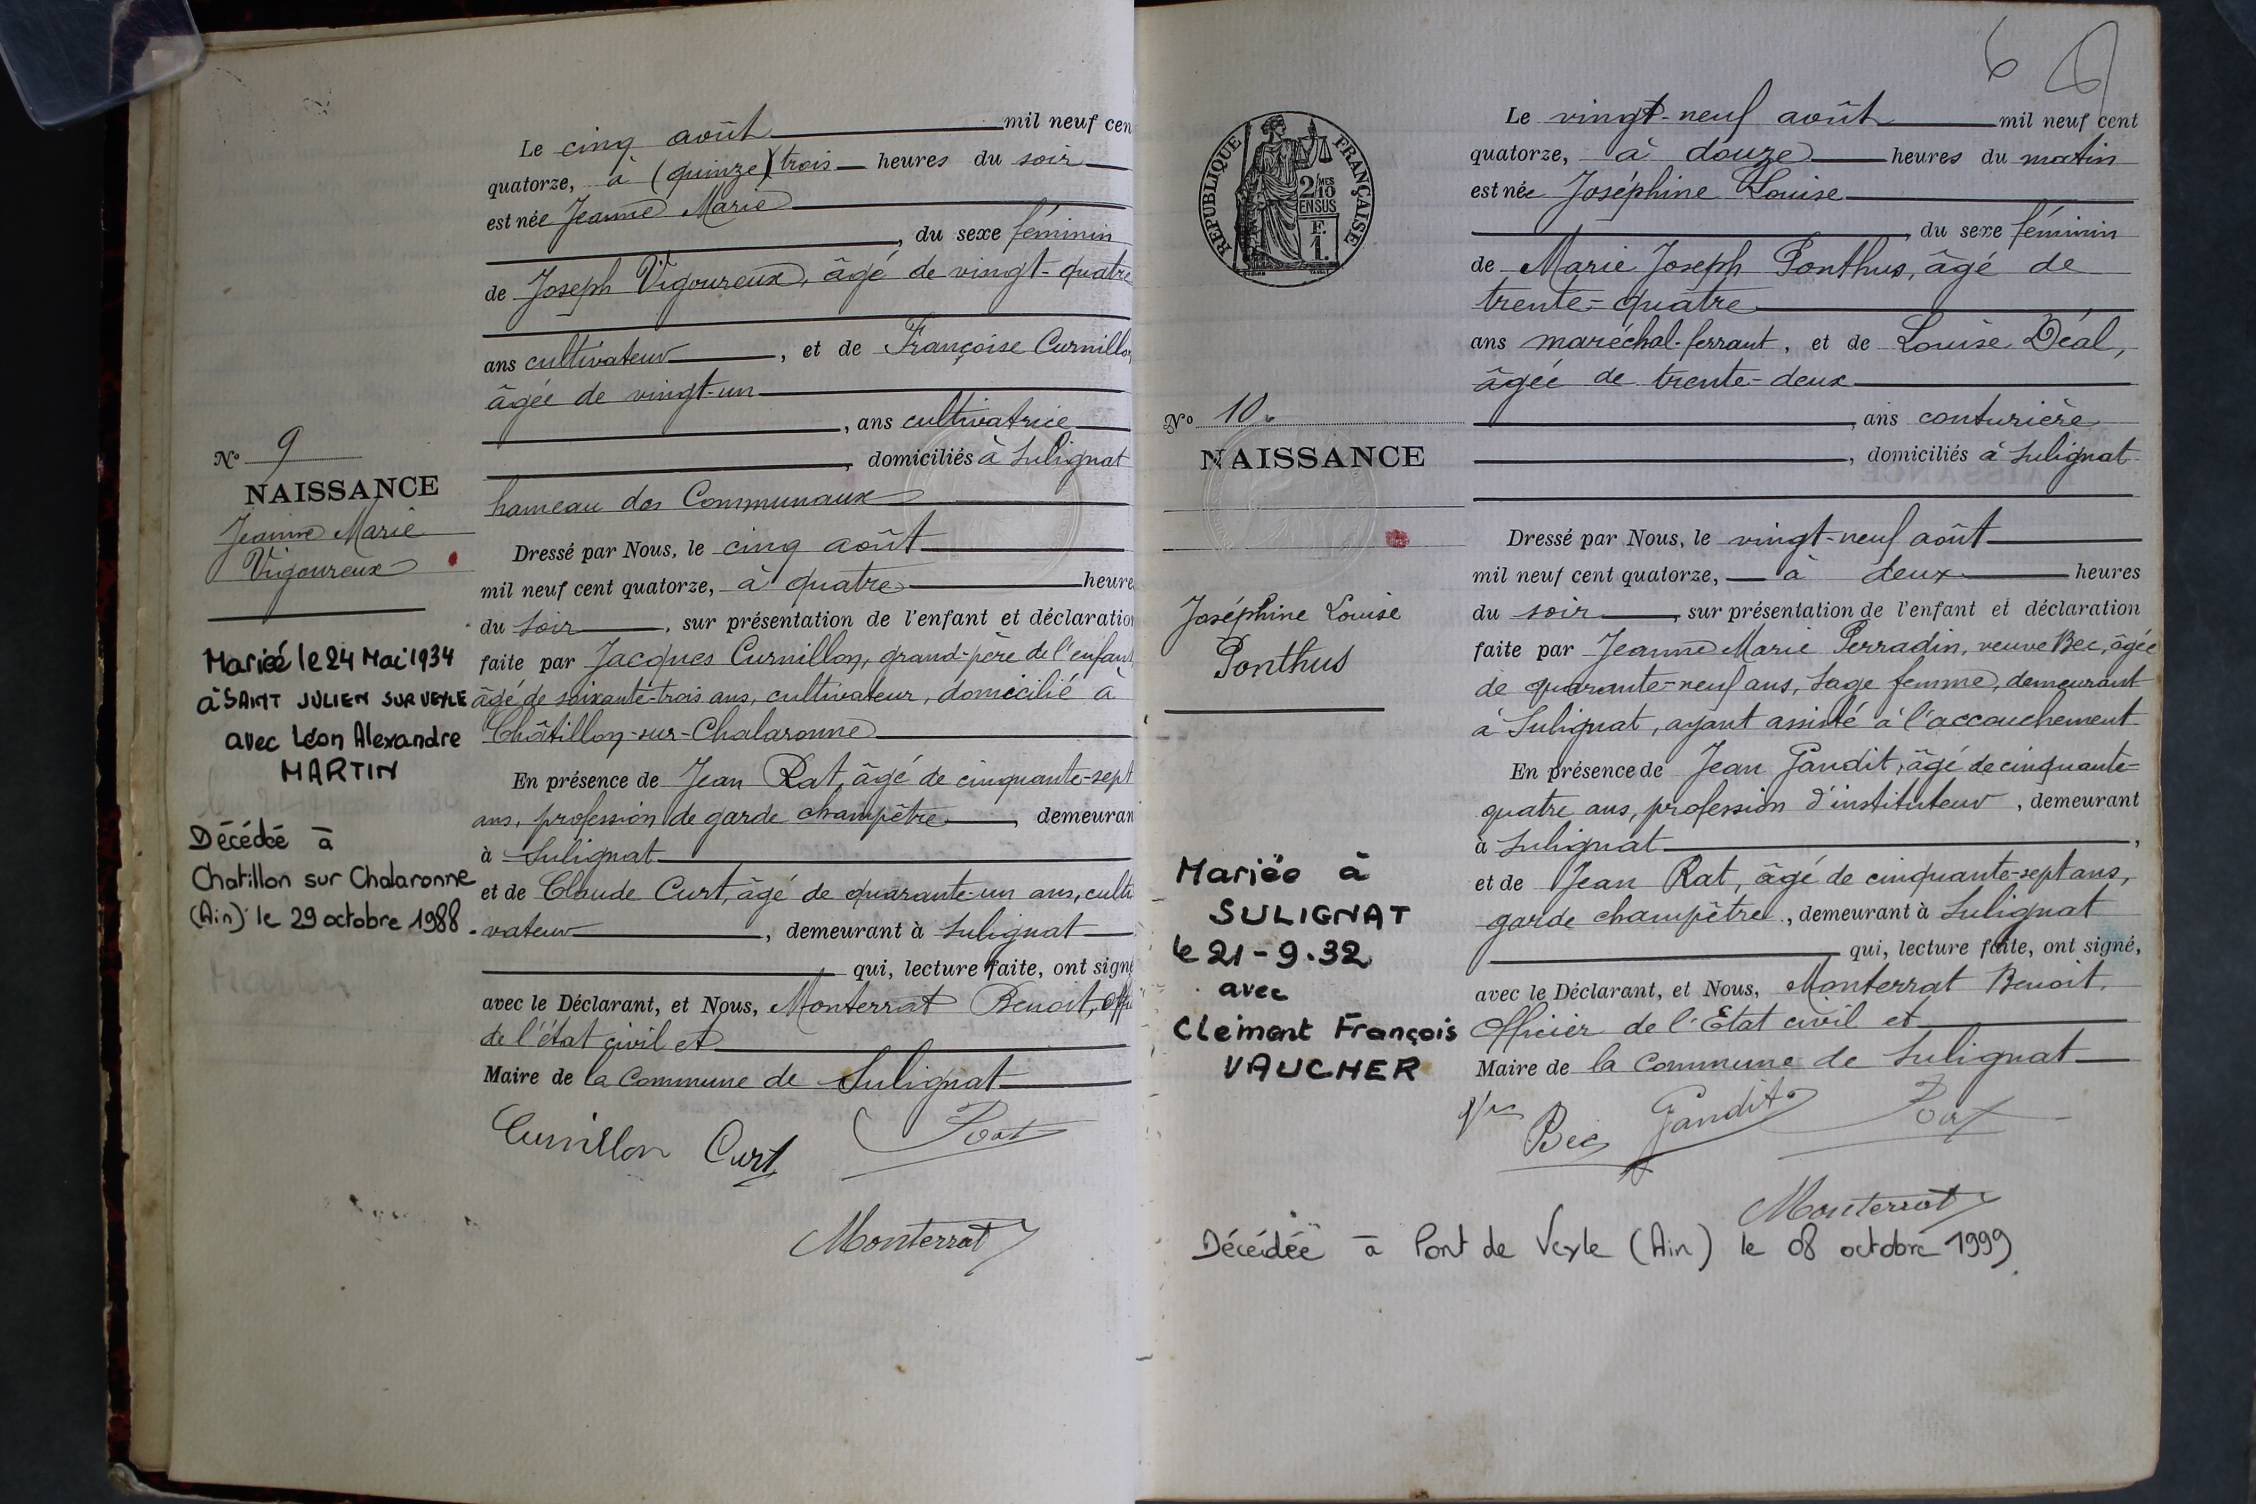 Le cinq août mil neuf cen
quatorze, à (quinze) trois heures du soir
est née Jeanne Marie
, du sexe féminin
de Joseph Vigoureux, âgé de vingt-quatre
ans cultivateur, et de Françoise Curnillon
âgée de vingt-un
, ans cultivatrice
, domiciliés à Sulignat
hameau des Communaux
Dressé par Nous, le cinq août
mil neuf cent quatorze, à quatre heure
du soir, sur présentation de l'enfant et déclaration
faite par Jacques Curnillon, grand-père de l'enfant
âgé de soixante-trois ans, cultivateur, domicilié à
Châtillon-sur-Chalaronne
En présence de Jean Rat, âgé de cinquante-sept
ans, profession de garde champêtre, demeuran
à Sulignat
et de Claude Curt, âgé de quarante-un ans, culti
vateur, demeurant à Sulignat
qui, lecture faite, ont signé
avec le Déclarant, et Nous, Monterrat Benoit, offi
de l'état civil et
Maire de la commune de Sulignat
Curnillon Curt Rat
Monterrat
N° 9
NAISSANCE
Jeanne Marie
Vigoureux
Mariée le 24 Mai 1934
à SAINT JULIEN SUR VEYLE
avec Léon Alexandre
MARTIN
Décédée à
Chatillon sur Chalaronne
(Ain) le 29 octobre 1988.
6 6
RÉPUBLIQUE FRANÇAISE
2/MES
10
EN SUS
F.
1.
Le vingt-neuf août mil neuf cent
quatorze, à douze heures du matin
est née Joséphine Louise
, du sexe féminin
de Marie Joseph Ponthus, âgé de
trente-quatre
ans maréchal-ferrant, et de Louise Déal,
âgée de trente-deux
, ans couturière
, domiciliés à Sulignat
Dressé par Nous, le vingt-neuf août
mil neuf cent quatorze, à deux heures
du soir, sur présentation de l'enfant et déclaration
faite par Jeanne Marie Perradin, veuve Bec, âgée
de quarante-neuf ans, sage femme, demeurant
à Sulignat, ayant assisté à l'accouchement
En présence de Jean Gandit, âgé de cinquante-
quatre ans, profession d'instituteur, demeurant
à Sulignat,
et de Jean Rat, âgé de cinquante-sept ans,
garde champêtre, demeurant à Sulignat
qui, lecture faite, ont signé,
avec le Déclarant, et Nous, Monterrat Benoit,
Officier de l'Etat civil et
Maire de la commune de Sulignat
Bec Gandit Rat
Monterrat
N° 10.
NAISSANCE
Joséphine Louise
Ponthus
Mariée à
SULIGNAT
le 21-9.32
avec
Clément François
VAUCHER
Décédée à Pont de Veyle (Ain) le 08 octobre 1999.